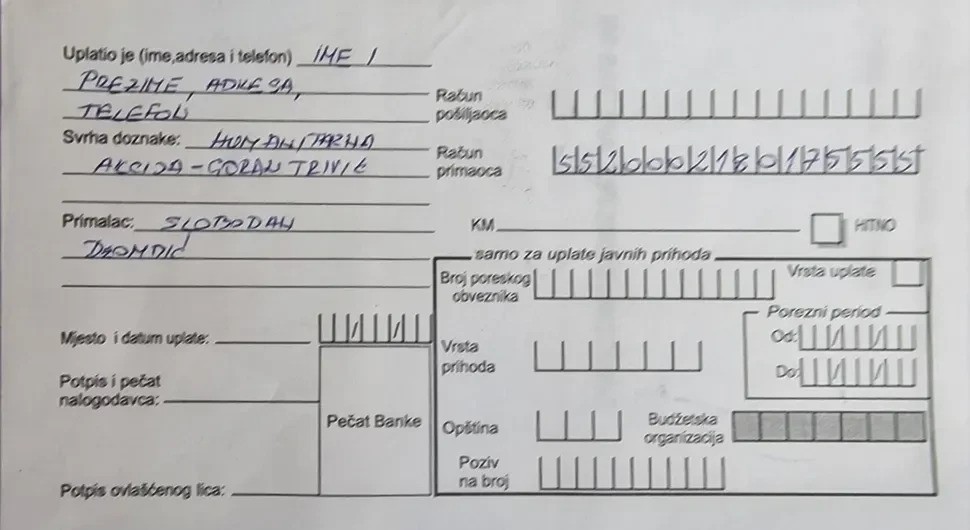 Uplatio je (ime,adresa i telefon) IME I
PREZIME, ADRESA,
TELEFON
Svrha doznake: HUMANITARNA
AKCIJA - GORAN TRIVIĆ
Primalac: SLOBODAN
Račun pošiljaoca
Račun primaoca 5520002180175555
KM HITNO
samo za uplate javnih prihoda
Broj poreskog obveznika
Vrsta uplate
Porezni period
Od:
Do:
Vrsta prihoda
Opština
Budžetska organizacija
Poziv na broj
Mjesto i datum uplate:
Potpis i pečat
nalogodavca:
Pečat Banke
Potpis ovlašćenog lica: